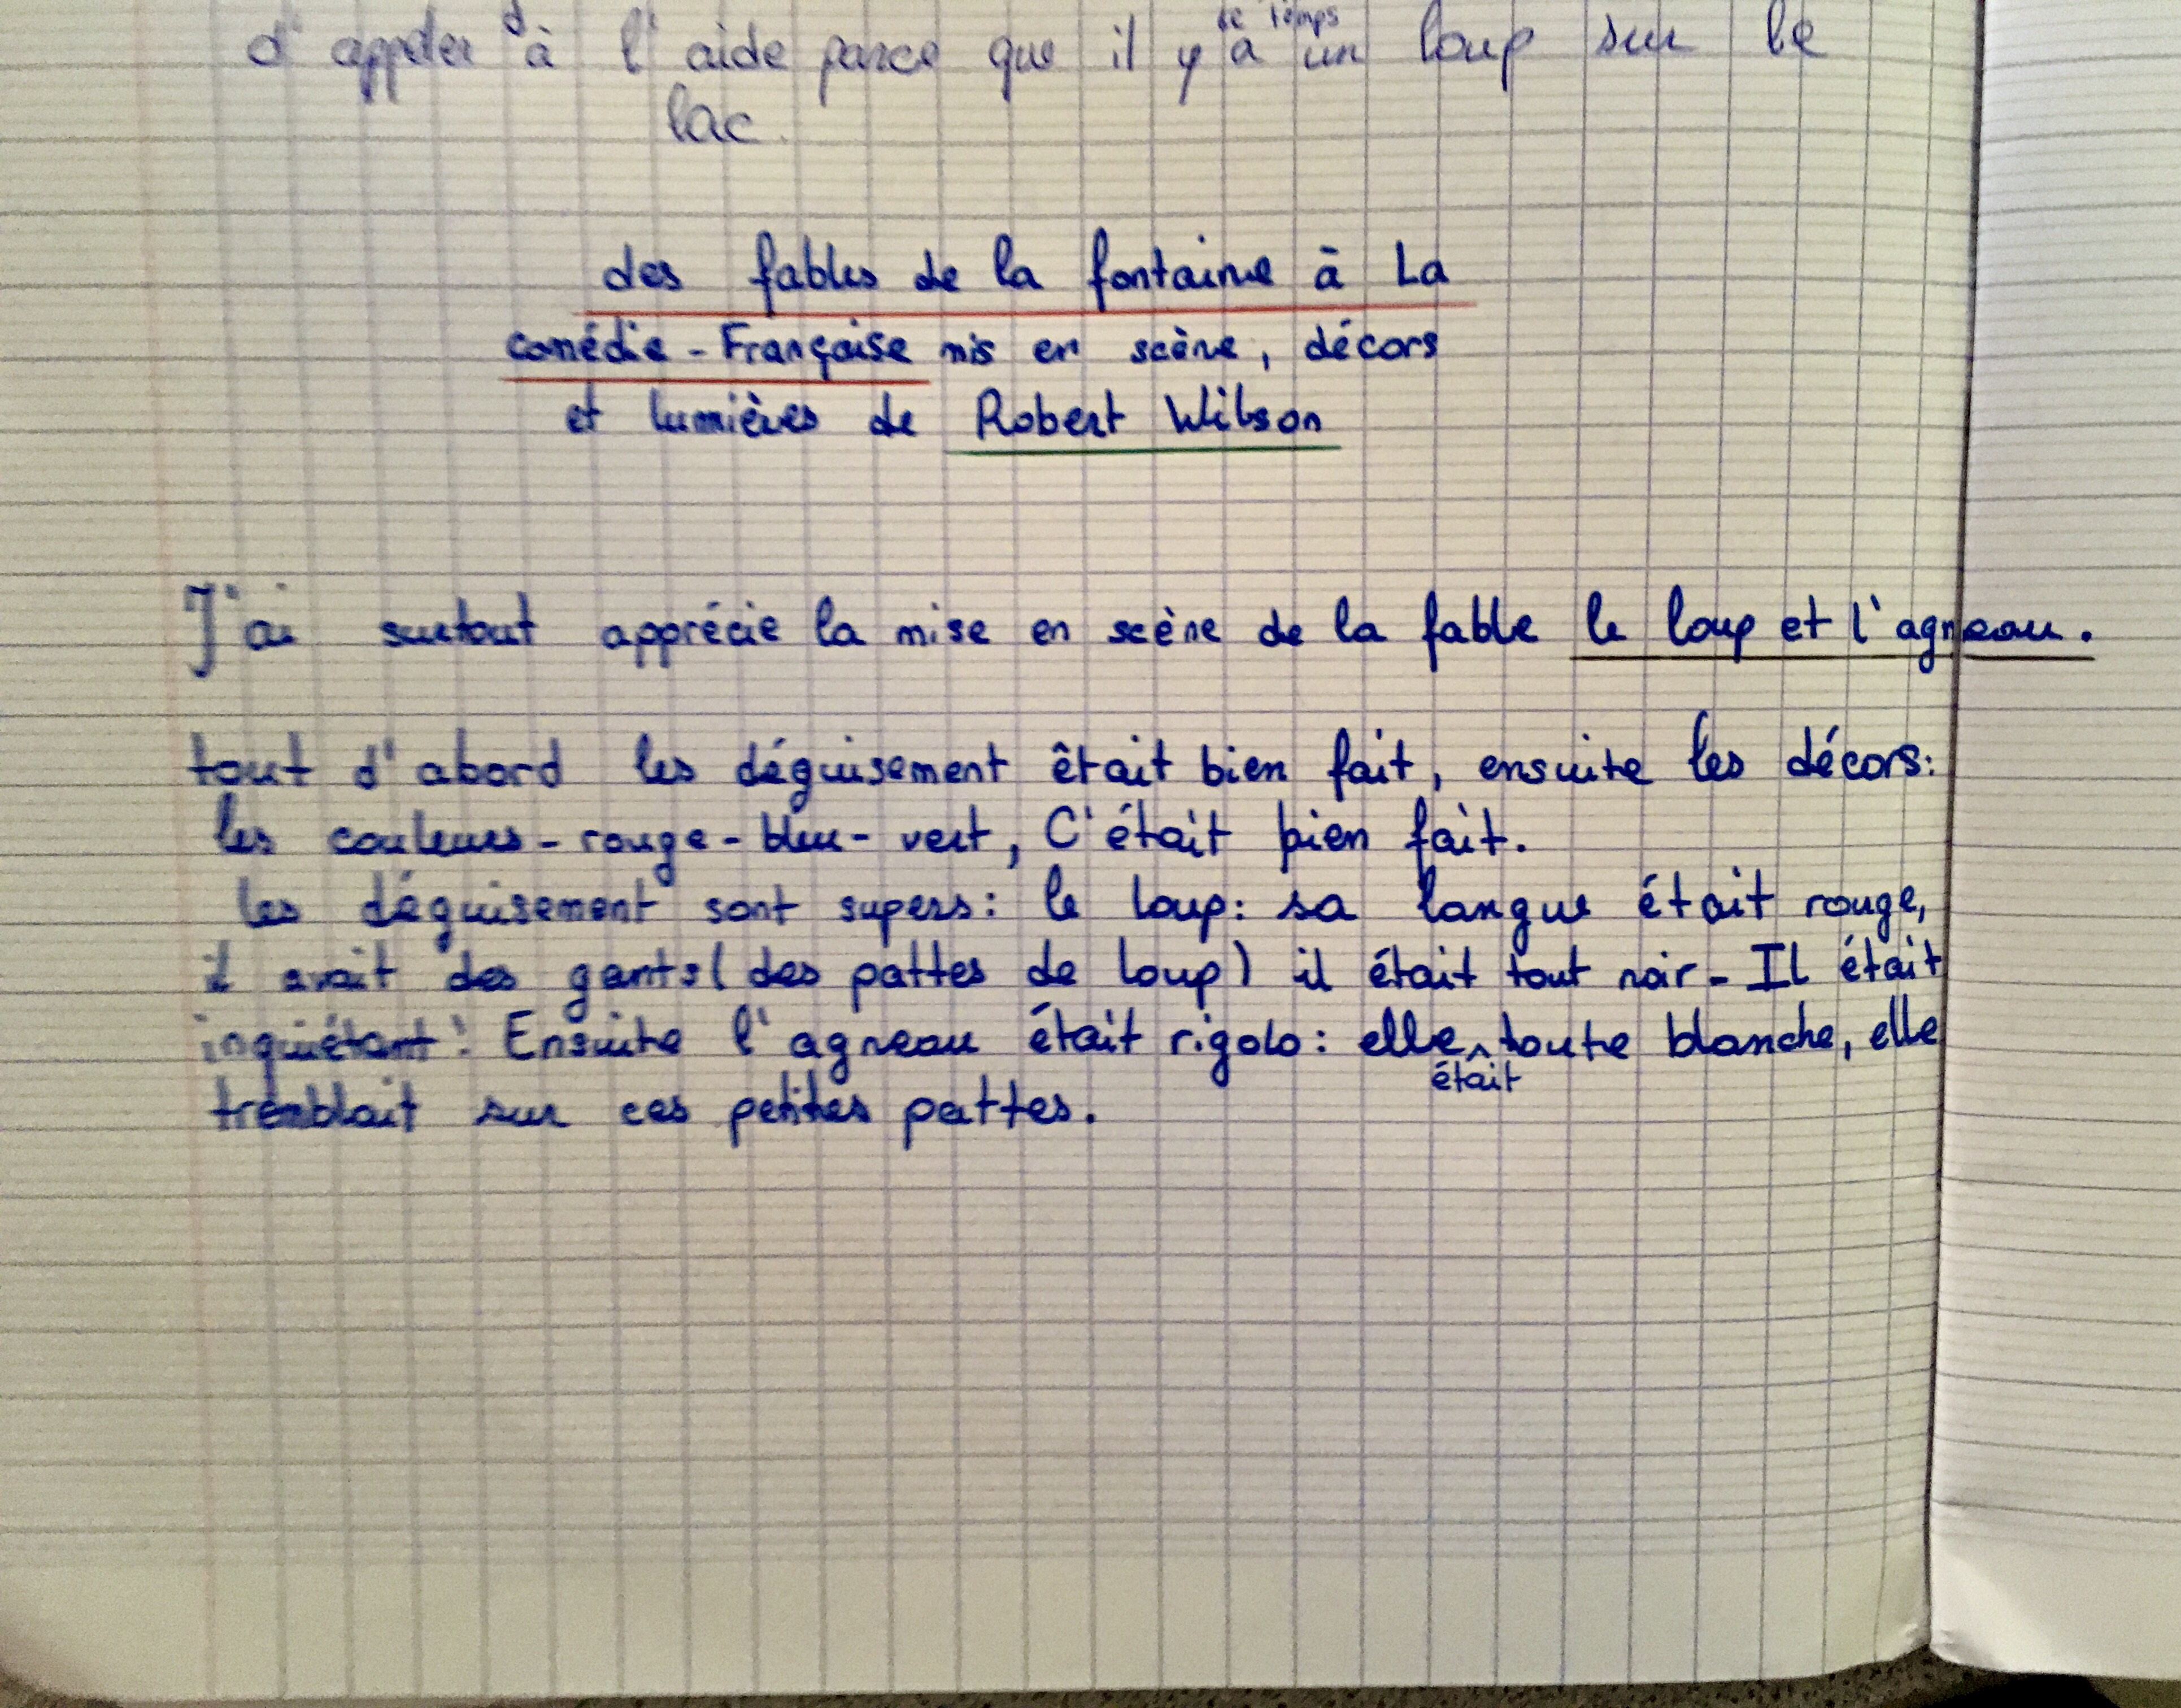 d'appeler à l'aide parce que il y a un loup sur le
lac.
des fables de la fontaine à La
comédie-Française mis en scène, décors
et lumières de Robert Wilson
J'ai surtout apprécie la mise en scène de la fable le loup et l'agneau.
tout d'abord les déguisement êtait bien fait, ensuite les décors:
les couleurs-rouge-bleu-vert, C'était bien fait.
les déguisement sont supers: le loup: sa langue était rouge,
il avait des gants (des pattes de loup) il était tout noir- Il était
inquiétant! Ensuite l'agneau était rigolo: elle était toute blanche, elle
tremblait sur ces petites pattes.